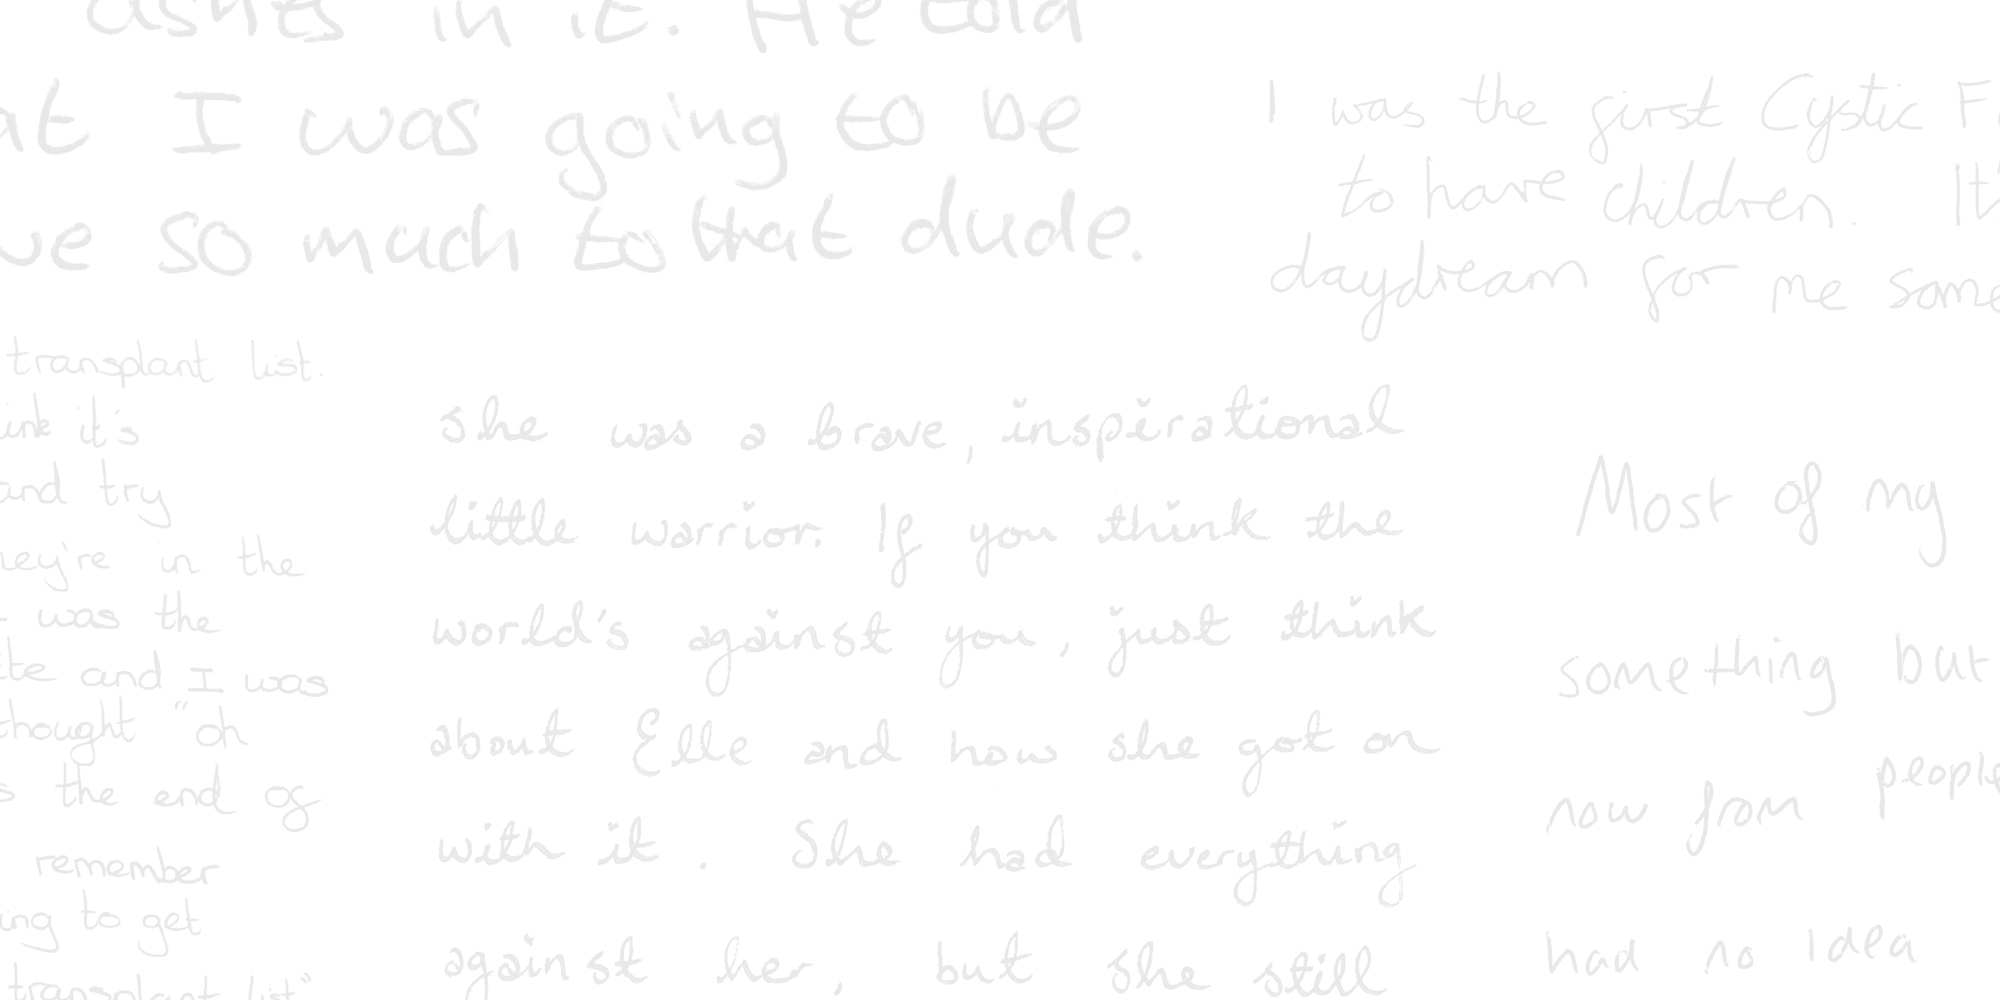 ashes in it. He told
at I was going to be
ve so much to that dude.
I was the first Cystic F
to have children. It'
daydream for me some
transplant list.
ink it's
and try
hey're in the
was the
ite and I was
thought "oh
s the end of
remember
ing to get
transplant list"
She was a brave, inspirational
little warrior. If you think the
world's against you, just think
about Elle and how she got on
with it. She had everything
against her, but she still
Most of my
something but
now from people
had no idea